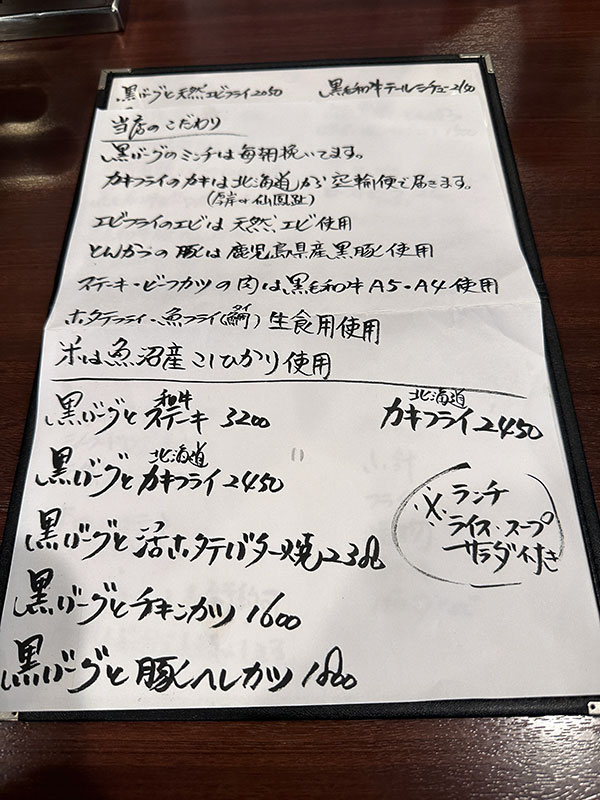 黒バーグと天然エビフライ2050 黒毛和牛テールシチュー2150
当店のこだわり
黒バーグのミンチは毎朝挽いてます。
カキフライのカキは北海道から空輸便で届きます。
(厚岸or仙鳳趾)
エビフライのエビは天然エビ使用
とんかつの豚は鹿児島県産黒豚使用
ステーキ・ビーフカツの肉は黒毛和牛A5・A4使用
ホタテフライ・魚フライ(鯛タイ)生食用使用
米は魚沼産こしひかり使用
黒バーグと和牛ステーキ 3200
北海道
カキフライ2450
黒バーグと北海道カキフライ2450
黒バーグと活ホタテバター焼2300
黒バーグとチキンカツ 1600
黒バーグと豚ヘレカツ 1800
※ランチ
ライス・スープ
サラダ付き